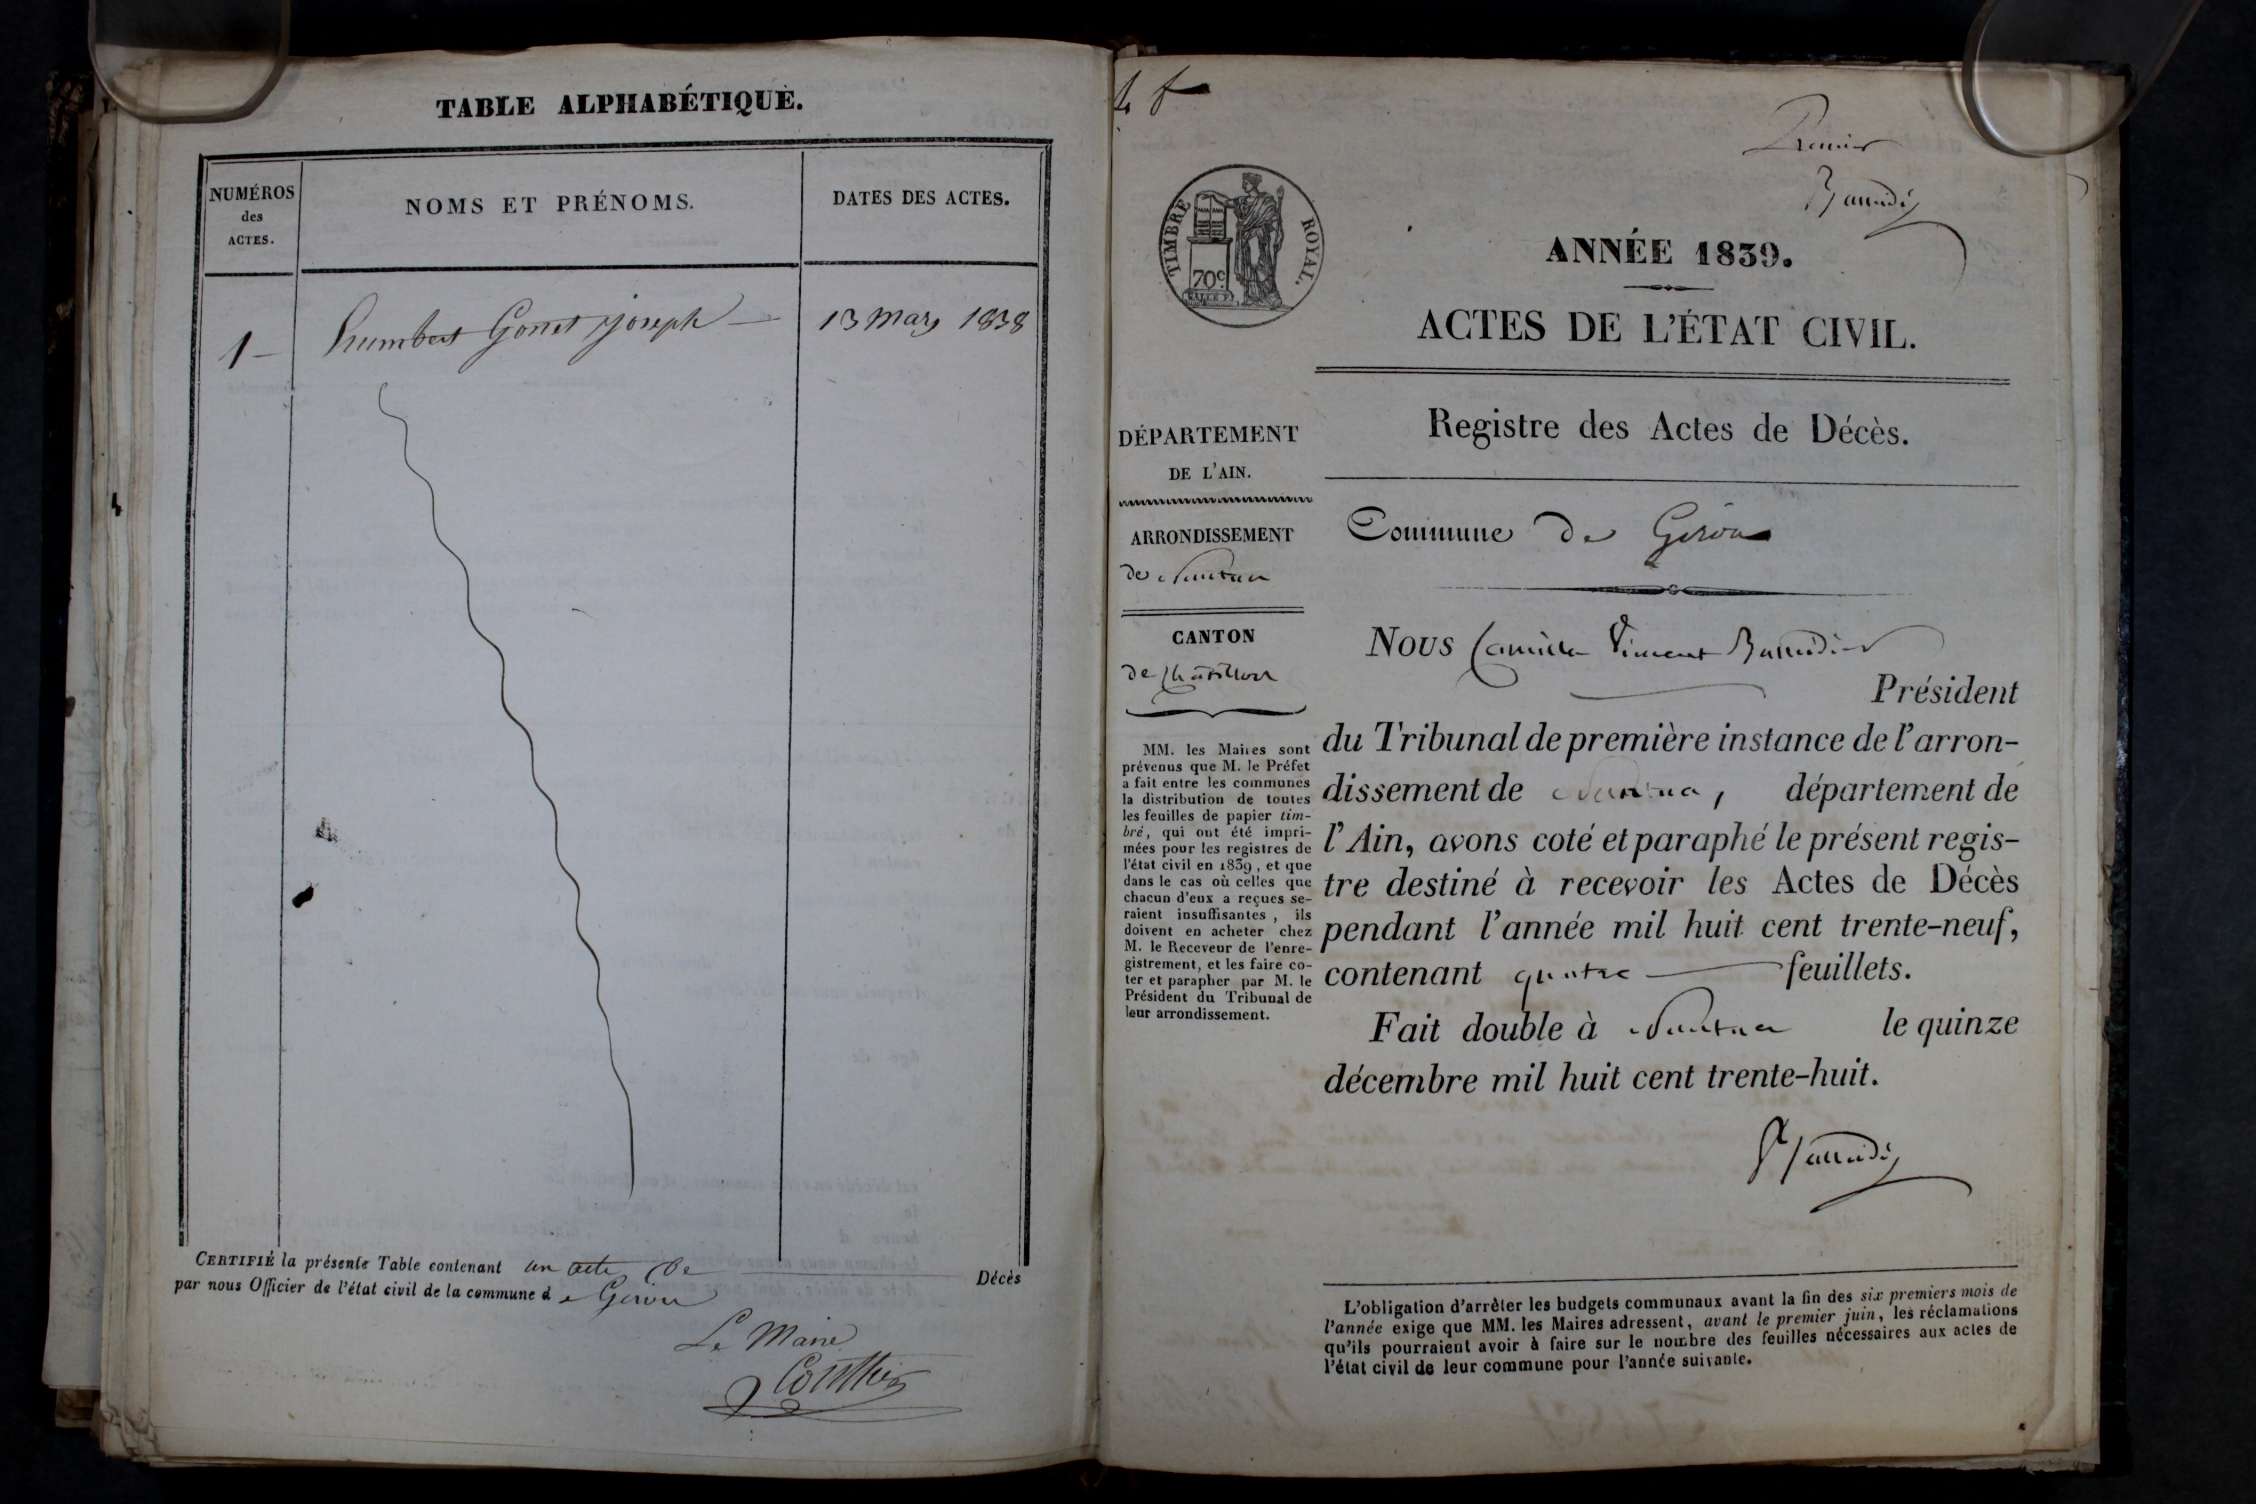 TABLE ALPHABÉTIQUE.
NUMÉROS
des
ACTES.
NOMS ET PRÉNOMS.
DATES DES ACTES.
1
humbert Gonet joseph
13 mars 1838
CERTIFIÉ la présente Table contenant un acte de Décès
par nous Officier de l'état civil de la commune de Giron
Le Maire
4 f
Premier
TIMBRE ROYAL.
70 c
ANNÉE 1839.
ACTES DE L'ÉTAT CIVIL.
Registre des Actes de Décès.
DÉPARTEMENT
DE L'AIN.
ARRONDISSEMENT
de Nantua
CANTON
de Châtillon
MM. les Maires sont
prévenus que M. le Préfet
a fait entre les communes
la distribution de toutes
les feuilles de papier tim-
bré, qui ont été impri-
mées pour les registres de
l'état civil en 1839, et que
dans le cas où celles que
chacun d'eux a reçues se-
raient insuffisantes, ils
doivent en acheter chez
M. le Receveur de l'enre-
gistrement, et les faire co-
ter et parapher par M. le
Président du Tribunal de
leur arrondissement.
Commune de Giron
Nous Camille Vincent
Président
du Tribunal de première instance de l'arron-
dissement de Nantua, département de
l'Ain, avons coté et paraphé le présent regis-
tre destiné à recevoir les Actes de Décès
pendant l'année mil huit cent trente-neuf,
contenant quatre feuillets.
Fait double à Nantua le quinze
décembre mil huit cent trente-huit.
L'obligation d'arrêter les budgets communaux avant la fin des six premiers mois de
l'année exige que MM. les Maires adressent, avant le premier juin, les réclamations
qu'ils pourraient avoir à faire sur le nombre des feuilles nécessaires aux actes de
l'état civil de leur commune pour l'année suivante.